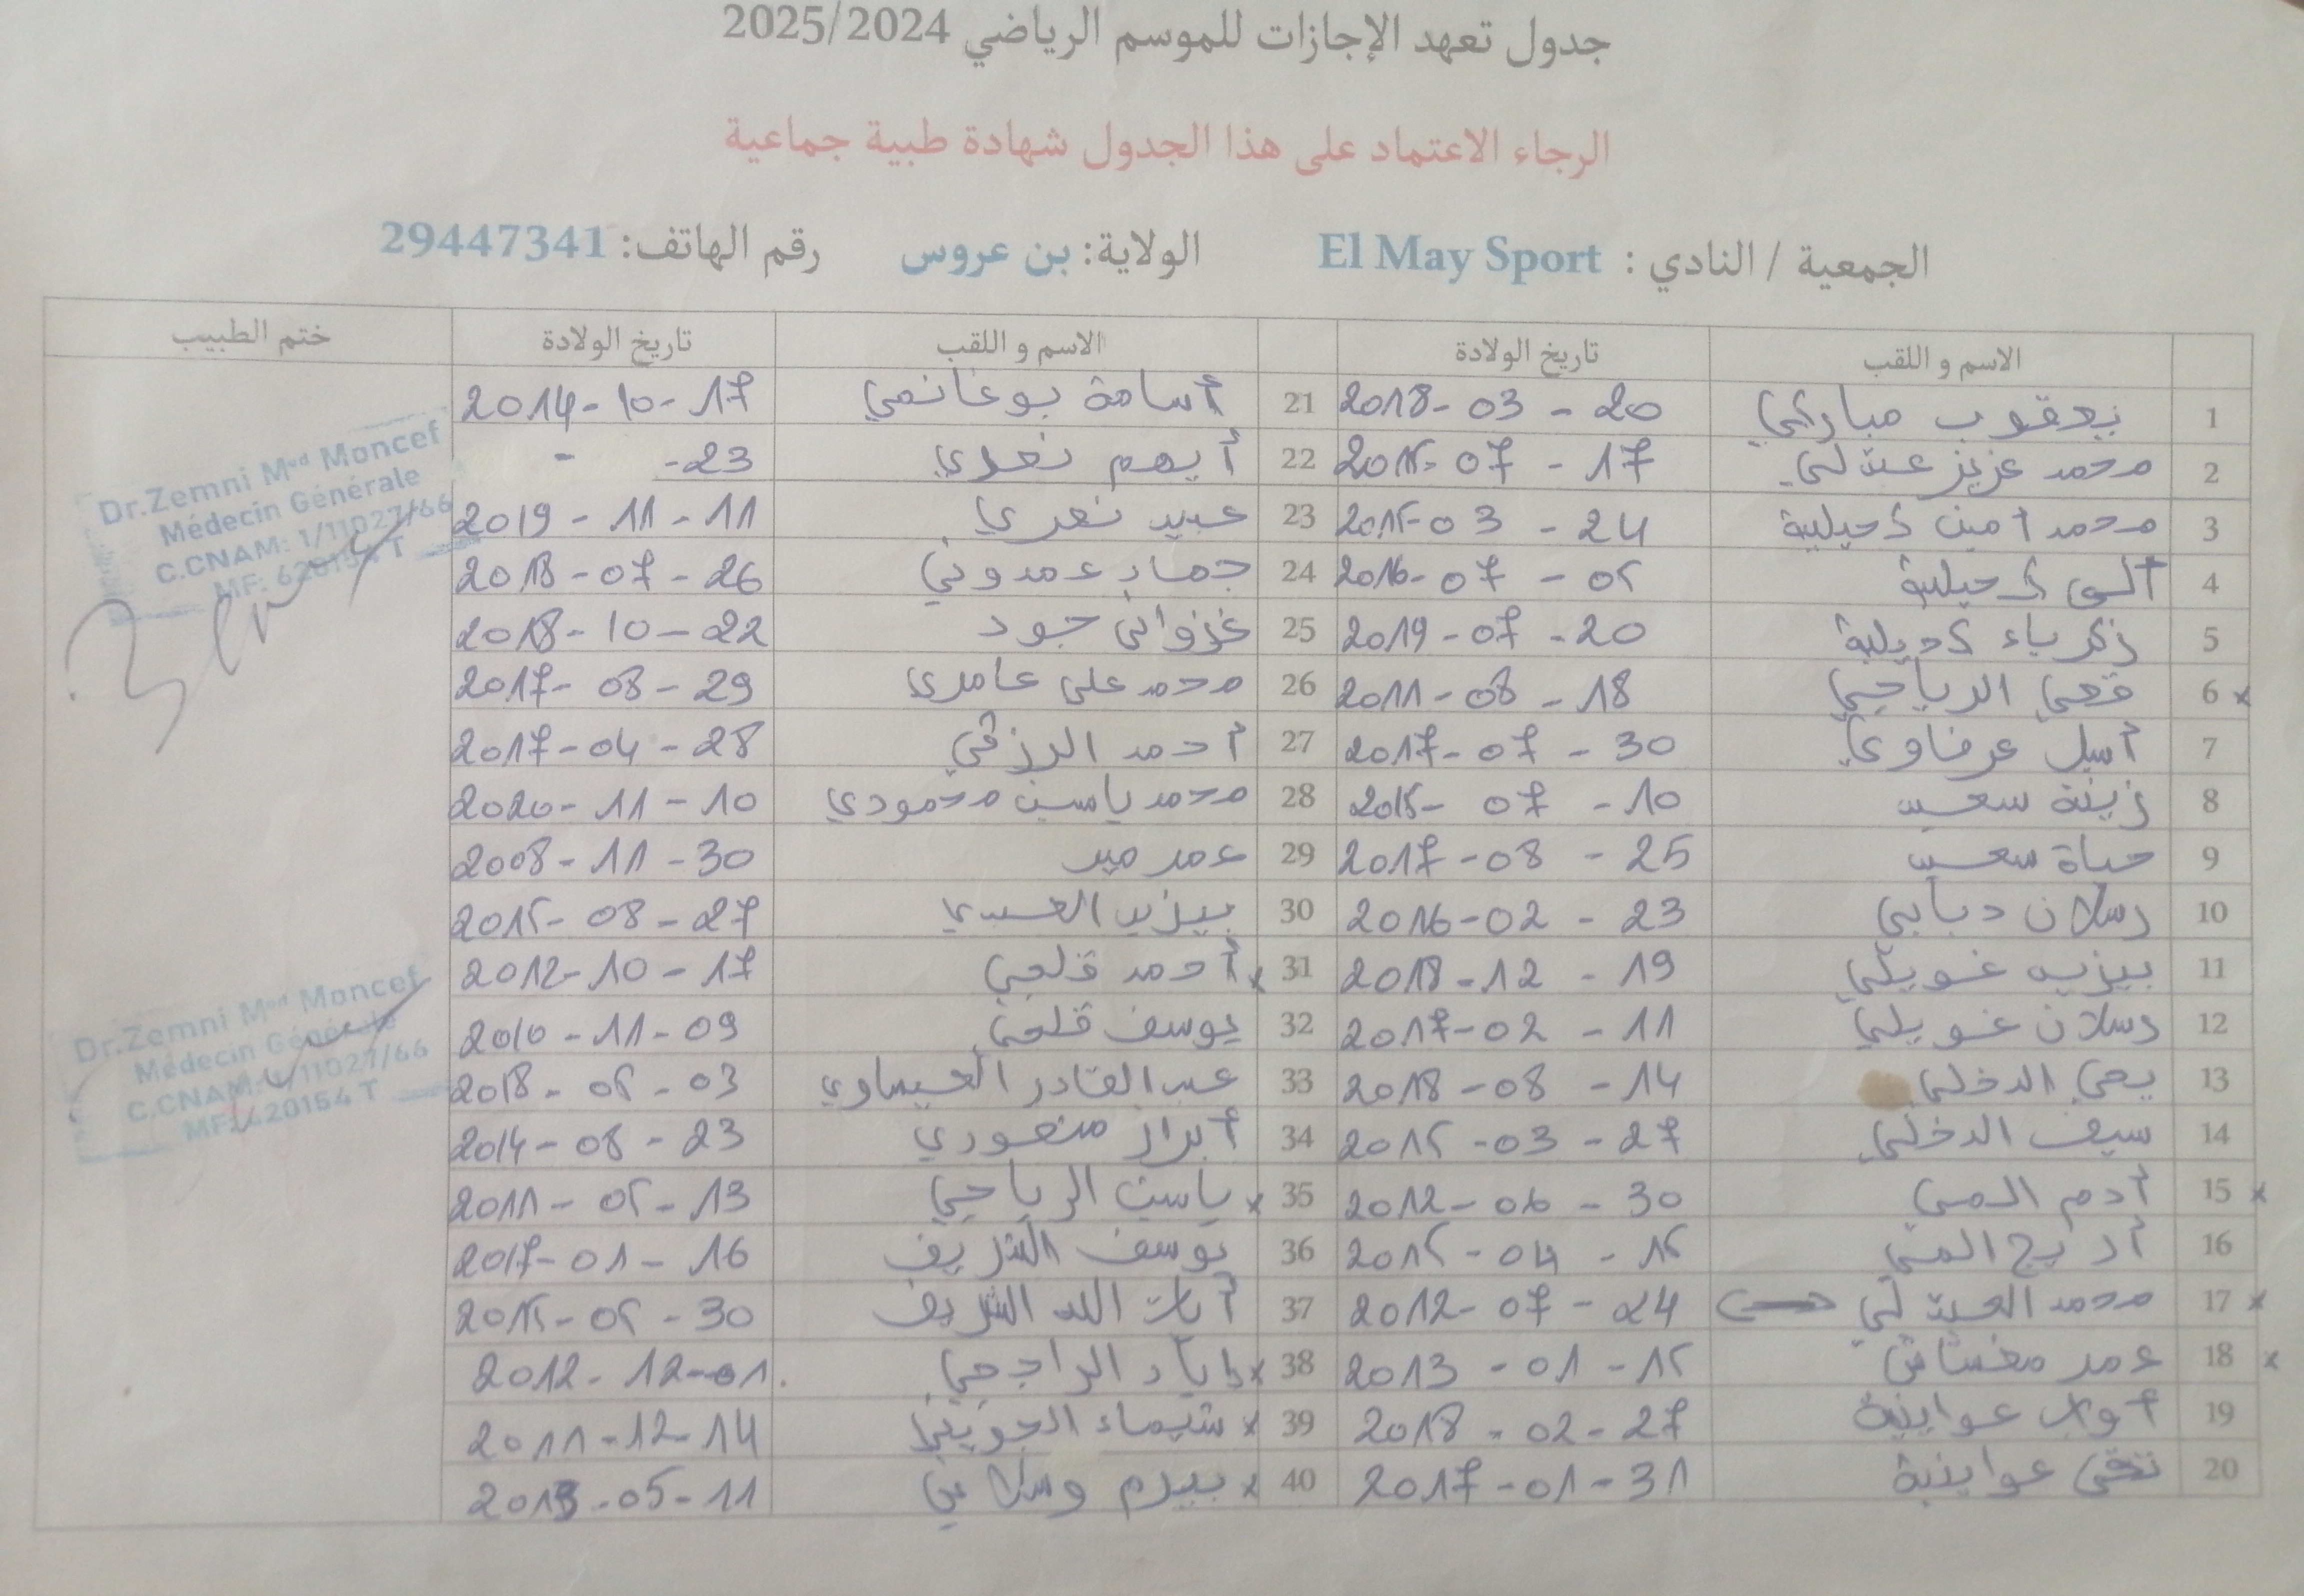 جدول تعهد الإجازات للموسم الرياضي 2025/2024
الرجاء الاعتماد على هذا الجدول شهادة طبية جماعية
الجمعية / النادي : El May Sport الولاية: بن عروس رقم الهاتف: 29447341
الاسم و اللقب تاريخ الولادة الاسم و اللقب تاريخ الولادة ختم الطبيب
1 يعقوب مباركي 20 - 03 - 2018 21 أسامة بوغانمي 17 - 10 - 2014
2 محمد عزيز 17 - 07 - 2015 22 أيهم 23 -
3 محمد أمين دحيلية 24 - 03 - 2015 23 11 - 11 - 2019
4 دحيلية 05 - 07 - 2016 24 جهاد عمدوني 26 - 07 - 2018
5 زكرياء دحيلية 20 - 07 - 2019 25 غزواني جود 22 - 10 - 2018
6 x قصي الرياحي 18 - 08 - 2011 26 محمد علي عامري 29 - 08 - 2017
7 أسيل عرفاوي 30 - 07 - 2017 27 أحمد الرزقي 28 - 04 - 2017
8 زينة سعيد 10 - 07 - 2015 28 محمد ياسين محمودي 10 - 11 - 2020
9 حياة سعيد 25 - 08 - 2017 29 عمر 30 - 11 - 2008
10 رسلان دبابي 23 - 02 - 2016 30 يزيد العبيدي 27 - 08 - 2015
11 يزيد غويلي 19 - 12 - 2018 31 x أحمد قلعي 17 - 10 - 2012
12 رسلان غويلي 11 - 02 - 2017 32 يوسف قلعي 09 - 11 - 2010
13 يحي الدخلي 14 - 08 - 2018 33 عبد القادر العيساوي 03 - 05 - 2018
14 سيف الدخلي 27 - 03 - 2015 34 أبرار منصوري 23 - 08 - 2014
15 x أدم المي 30 - 06 - 2012 35 x ياسين الرياحي 13 - 05 - 2011
16 أريج المي 15 - 04 - 2015 36 يوسف الشريف 16 - 01 - 2017
17 x محمد 24 - 07 - 2012 37 أيات الله الشريف 30 - 05 - 2015
18 x عمر 15 - 01 - 2013 38 x إياد الراجحي 01 - 12 - 2012
19 عواينية 27 - 02 - 2018 39 x شيماء الجويني 14 - 12 - 2011
20 تقى عواينية 31 - 01 - 2017 40 x بيرم وسلاتي 11 - 05 - 2013
Dr.Zemni Med Moncef
Médecin Générale
C.CNAM: 1/11027/66
MF: 620154 T
Dr.Zemni Med Moncef
Médecin Générale
C.CNAM: 1/11027/66
MF: 620154 T